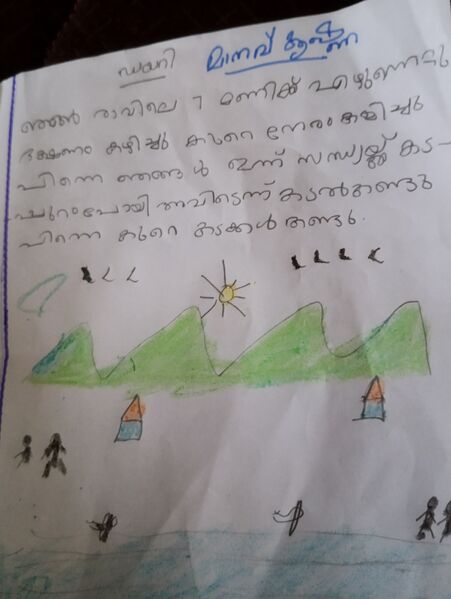 ഡയറി മാനവ് കൃഷ്ണ
ഞങ്ങൾ രാവിലെ 7 മണിക്ക് എഴുന്നേറ്റു
ഭക്ഷണം കഴിച്ചു കുറെ നേരം കളിച്ചു
പിന്നെ ഞങ്ങൾ ഇന്ന് സന്ധ്യയ്ക്ക് കട-
പ്പുറംപോയി അവിടെന്ന് കടൽകണ്ടു
പിന്നെ കുറെ കാക്കകൾ കണ്ടു.